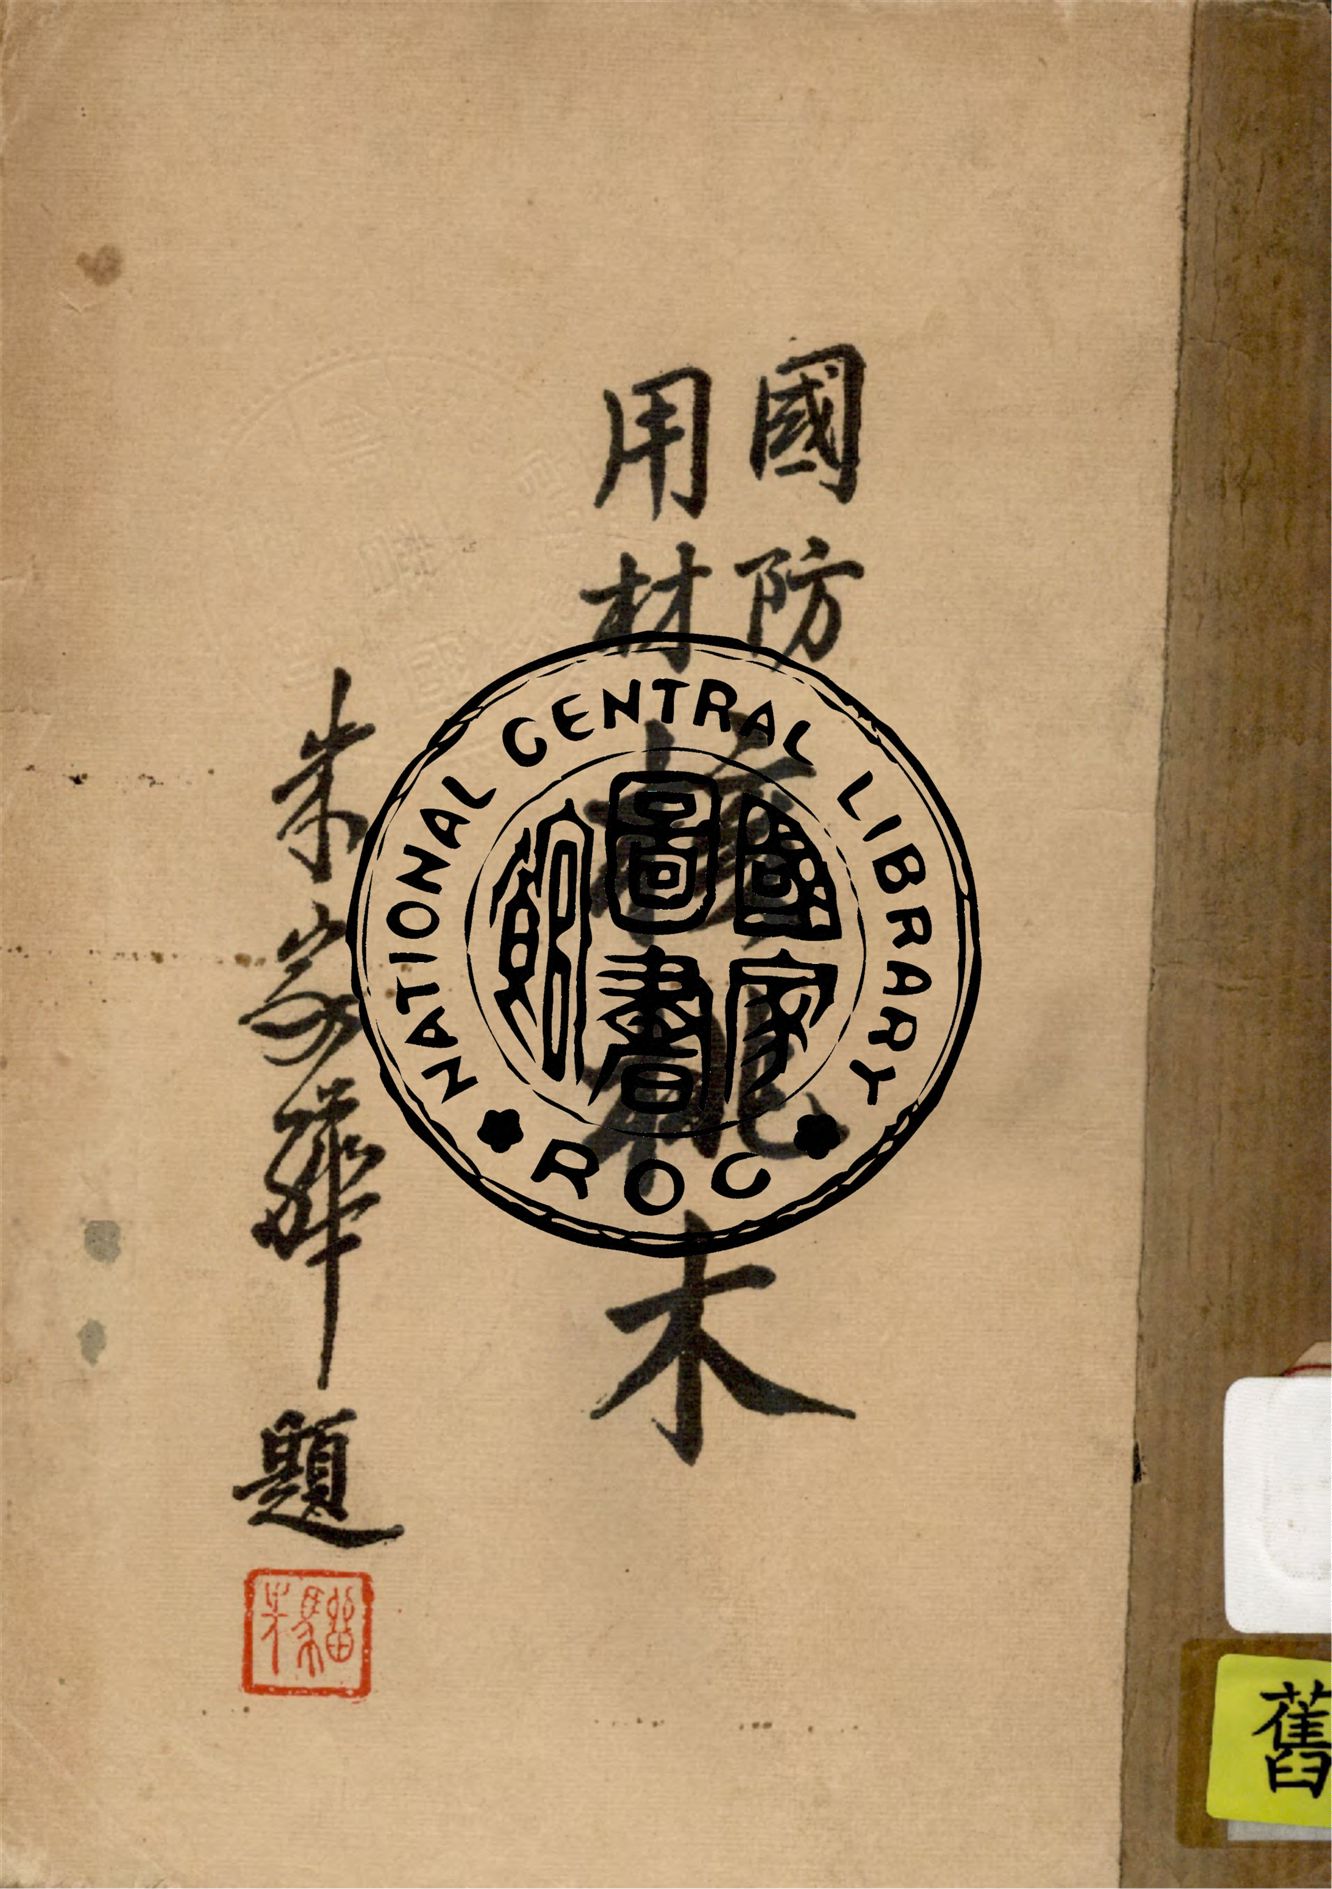 國防
用材
核桃木
朱家驊題
朱騮
NATIONAL CENTRAL LIBRARY
國家
圖書
館
ROC
舊